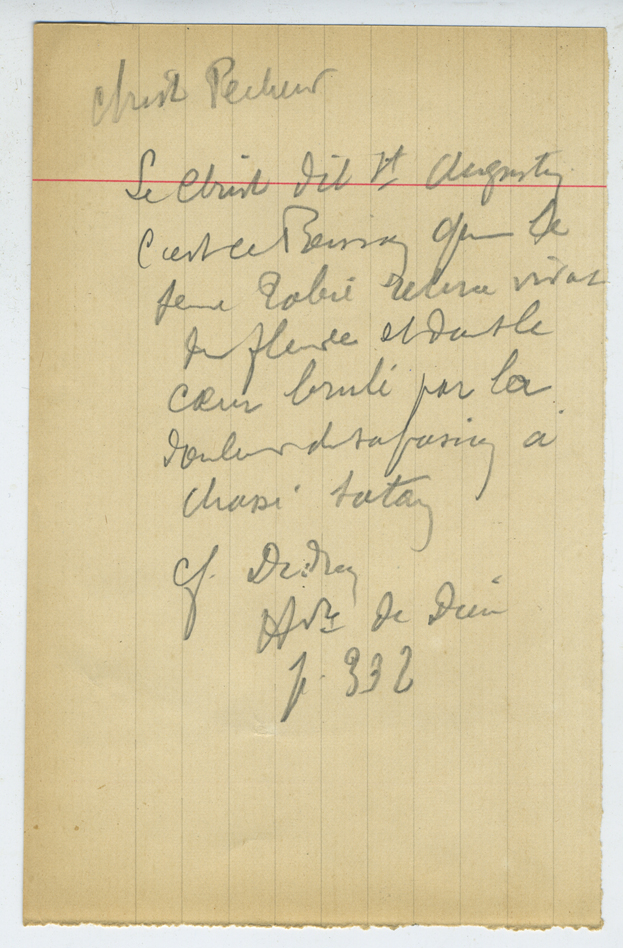 Christ Pecheur
Le Christ dit St Augustin
c'est ce Poisson que le
jeune Tobie retira vivant
du fleuve et dont le
cœur brulé par la
douleur de sa passion a
chassé satan
cf. Didron
Hist. de Dieu
p. 332